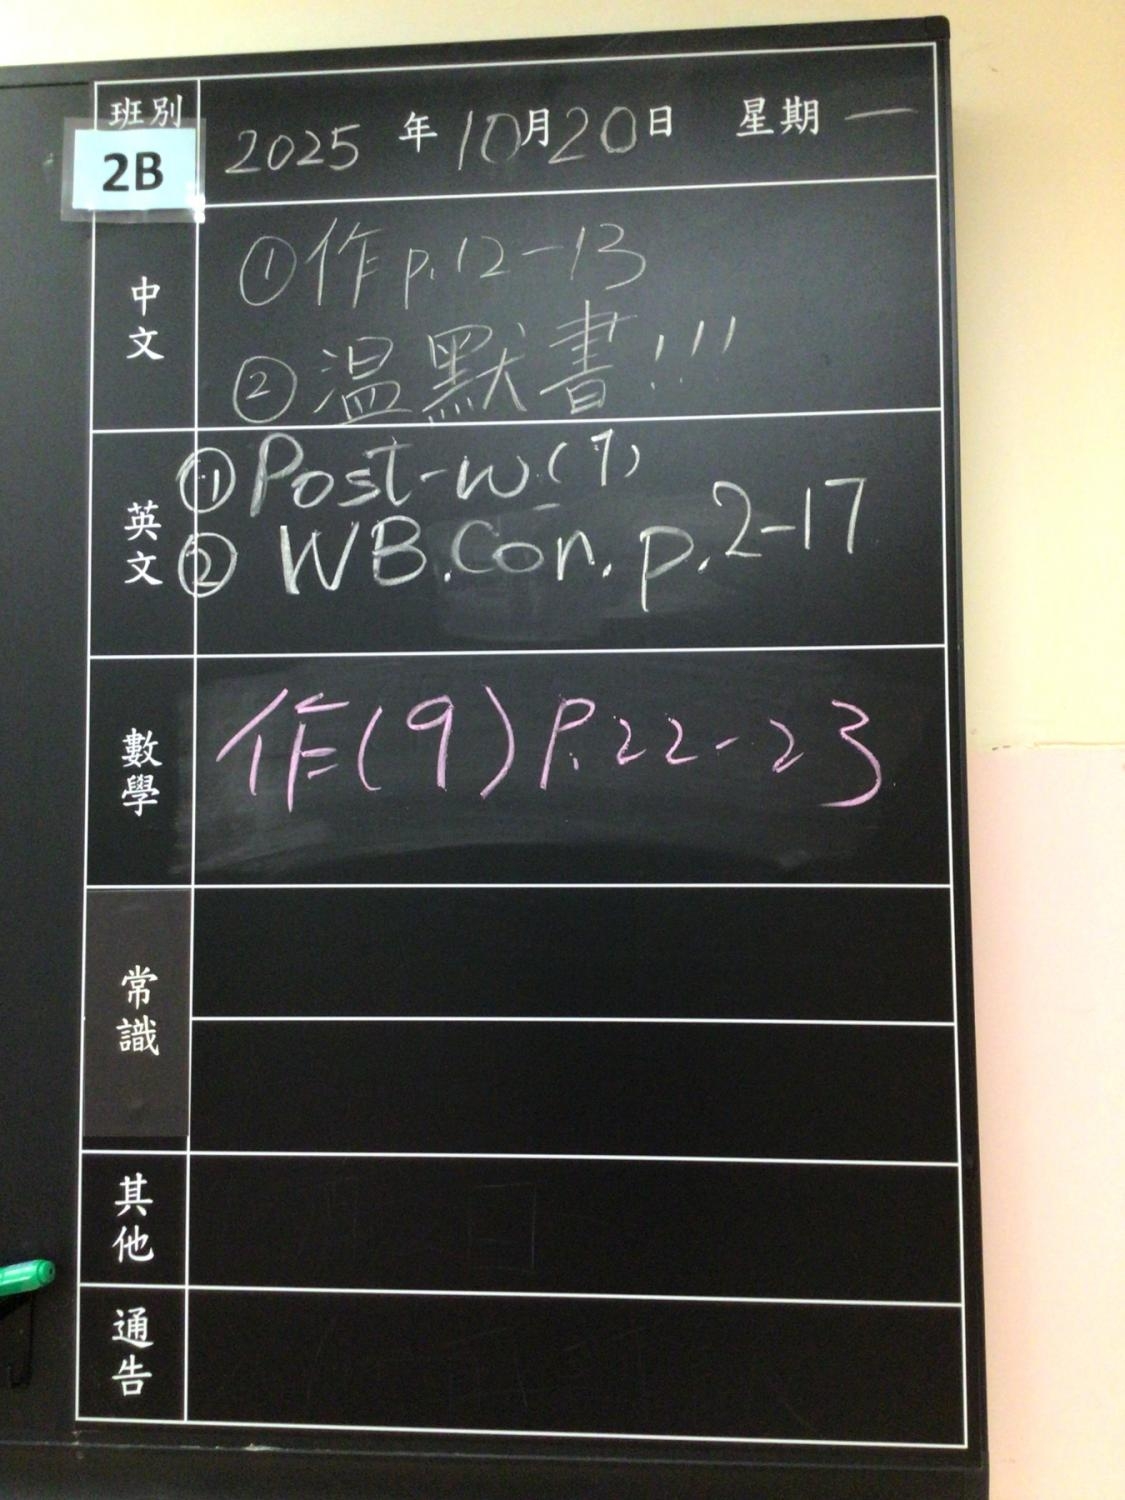 班別
2B
2025 年 10 月 20 日 星期 一
中文
①作 p.12-13
②温默書!!!
英文
① Post-w.(7)
② WB.Con.p.2-17
數學
作(9) P.22-23
常識
其他
通告